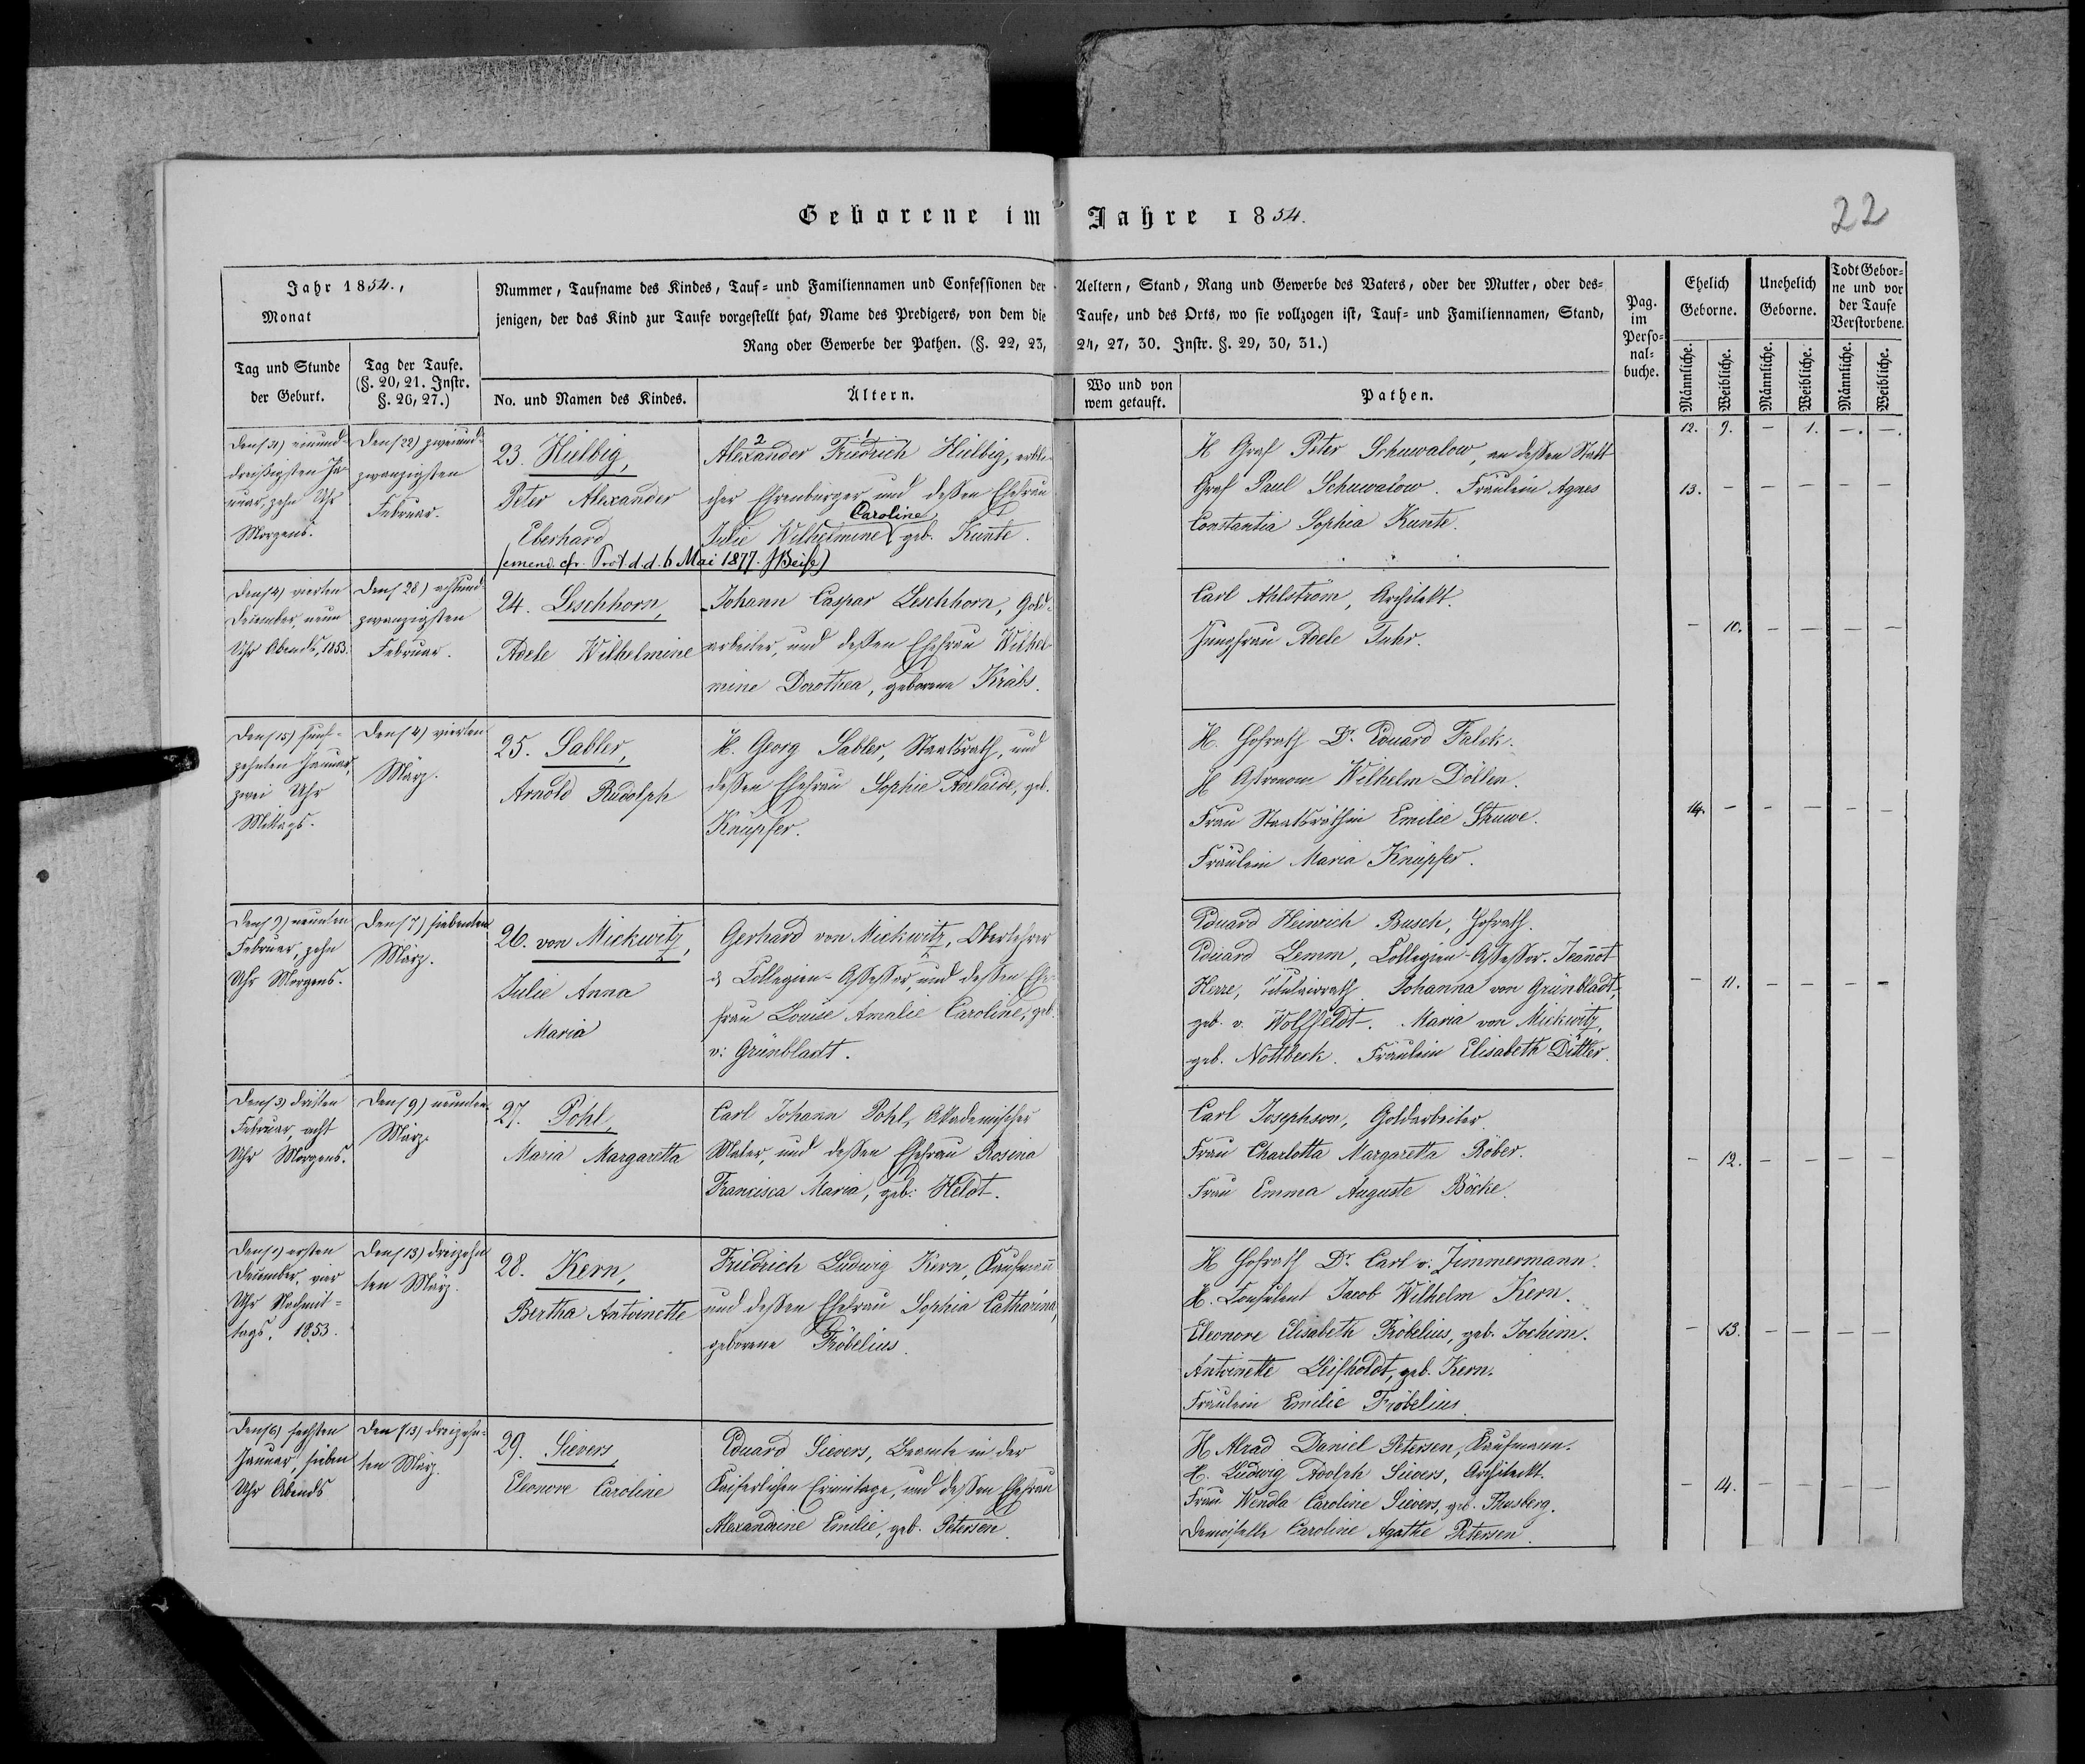 Geborene im Jahre 1854.
22
Jahr 1854.,
Monat
Tag und Stunde
der Geburt.
Tag der Taufe.
(§. 20, 21. Instr.
§. 26, 27.)
Nummer, Taufname des Kindes, Tauf- und Familiennamen und Confessionen der Aeltern, Stand, Rang und Gewerbe des Vaters, oder der Mutter, oder des-
jenigen, der das Kind zur Taufe vorgestellt hat, Name des Predigers, von dem die Taufe, und des Orts, wo sie vollzogen ist, Tauf- und Familiennamen, Stand,
Rang oder Gewerbe der Pathen. (§. 22, 23, 24, 27, 30. Instr. §. 29, 30, 31.)
No. und Namen des Kindes.
Ältern.
Wo und von
wem getauft.
Pathen.
Pag.
im
Perso-
nal-
buche.
Ehelich
Geborne.
Unehelich
Geborne.
Todt Gebor-
ne und vor
der Taufe
Verstorbene.
Männliche.
Weibliche.
Männliche.
Weibliche.
Männliche.
Weibliche.
12. 9. — 1. —. —.
Den (31) einund-
dreißigsten Ja-
nuar, zehn Uhr
Morgens.
Den (22) zweiund-
zwanzigsten
Februar.
23. Hülbig,
Peter Alexander
Eberhard
2 1
Alexander Friedrich Hülbig, erbli-
cher Ehrenbürger und deßen Ehefrau
Caroline
Julie Wilhelmine geb. Kunte.
(emend. cfr. Prot. d. d. 6 Mai 1877. JBeise)
H Graf Peter Schuwalow, an deßen Statt
Graf Paul Schuwalow. Fräulein Agnes
Constantia Sophia Kunte.
13. — — — — —
Den (4) vierten
December, neun
Uhr Abends, 1853.
Den (28) achtund-
zwanzigsten
Februar.
24. Leschhorn,
Adele Wilhelmine
Johann Caspar Leschhorn, Gold-
arbeiter, und deßen Ehefrau Wilhel-
mine Dorothea, geborene Krabs.
Carl Ahlström, Architekt.
Jungfrau Adele Fuhr.
— 10. — — — —
Den (15) fünf-
zehnten Januar,
zwei Uhr
Mittags.
Den (4) vierten
März.
25. Sabler,
Arnold Rudolph
H. Georg Sabler, Staatsrath, und
deßen Ehefrau Sophie Adelaide, geb.
Knüpfer.
H. Hofrath Dr. Eduard Falck.
H Astronom Wilhelm Döllen.
Frau Staatsräthin Emilie Struve.
Fräulein Maria Knüpfer.
14. — — — — —
Den (9) neunten
Februar, zehn
Uhr Morgens.
Den (7) siebenten
März.
26. von Mickwitz,
Julie Anna
Maria
Gerhard von Mickwitz, Oberlehrer
& Collegien-Aßeßor, und deßen Ehe-
frau Louise Amalie Caroline, geb.
v. Grünbladt.
Eduard Heinrich Busch, Hofrath.
Eduard Lemm, Collegien-Aßeßor. Jeannot
Herre, Titulairrath. Johanna von Grünbladt,
geb. v. Wolffeldt. Maria von Mickwitz,
geb. Nottbeck. Fräulein Elisabeth Dittler.
— 11. — — — —
Den (3) dritten
Februar, acht
Uhr Morgens.
Den (9) neunten
März.
27. Pohl,
Maria Margaretta
Carl Johann Pohl, Akademischer
Maler, und deßen Ehefrau Rosina
Francisca Maria, geb. Heldt.
Carl Josephson, Goldarbeiter
Frau Charlotta Margaretta Röber.
Frau Emma Auguste Böcke.
— 12. — — — —
Den (1) ersten
December, vier
Uhr Nachmit-
tags, 1853.
Den (13) dreizehn-
ten März.
28. Kern,
Bertha Antoinette
Friedrich Ludwig Kern, Kaufmann
und deßen Ehefrau Sophia Catharina,
geborene Fröbelius.
H Hofrath Dr. Carl v. Zimmermann.
H. Consulent Jacob Wilhelm Kern.
Eleonore Elisabeth Fröbelius, geb. Jochim.
Antoinette Leisholdt, geb. Kern.
Fräulein Emilie Fröbelius
— 13. — — — —
Den (6) sechsten
Januar, sieben
Uhr Abends
Den (13) dreizehn-
ten März.
29. Sievers,
Eleonore Caroline
Eduard Sievers, Beamte in der
Kaiserlichen Ermitage, und deßen Ehefrau
Alexandrine Emilie, geb. Petersen.
H Daniel Petersen, Kaufmann.
H. Ludwig Adolph Sievers, Architeckt.
Frau Wendla Caroline Sievers, geb. Thusberg.
Demoiselle Caroline Agathe Petersen.
— 14. — — — —